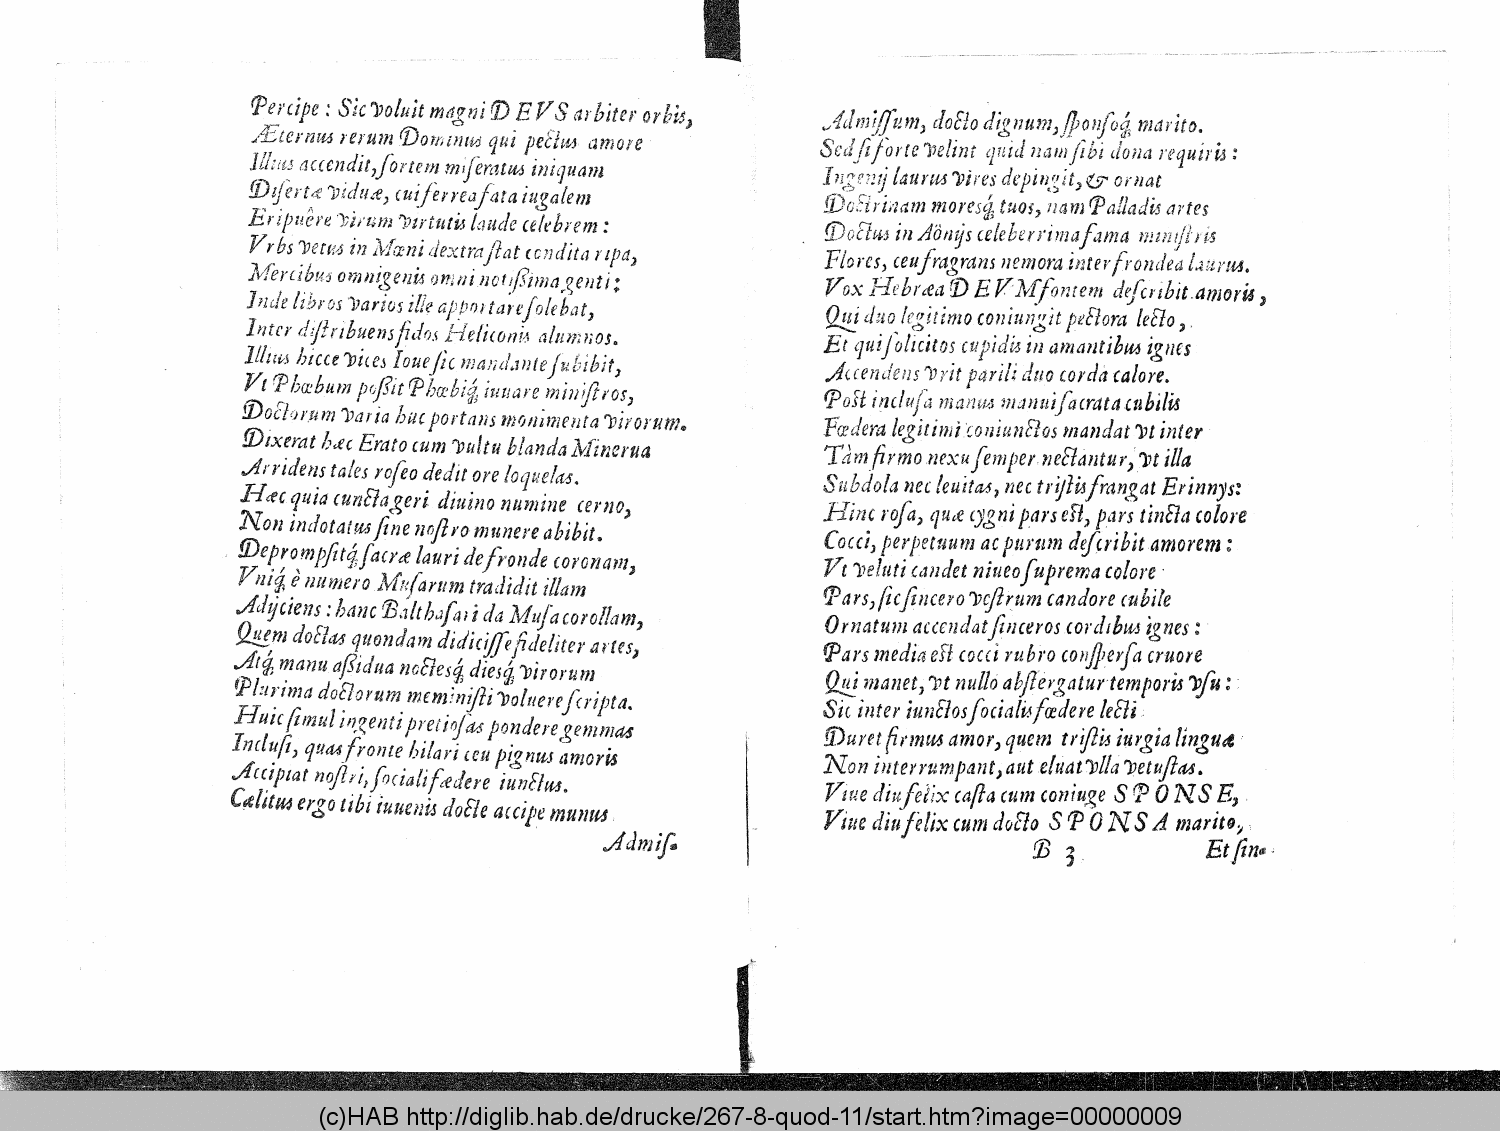 Percipe : Sic voluit magni DEVS arbiter orbis,
Æternus rerum Dominus qui pectus amore
Illius accendit, sortem miseratus iniquam
Disertæ viduæ, cui ferrea fata iugalem
Eripuêre virum virtutis laude celebrem :
Vrbs vetus in Mœni dextra stat condita ripa,
Mercibus omnigenis omni notißima genti ;
Inde libros varios ille apportare solebat,
Inter distribuens fidos Heliconis alumnos.
Illius hicce vices Ioue sic mandante subibit,
Vt Phœbum poßit Phœbiq́; iuuare ministros,
Doctorum varia huc portans monimenta virorum.
Dixerat hæc Erato cum vultu blanda Minerua
Arridens tales roseo dedit ore loquelas.
Hæc quia cuncta geri diuino numine cerno,
Non indotatus sine nostro munere abibit.
Deprompsitq́; sacræ lauri de fronde coronam,
Vniq́; è numero Musarum tradidit illam
Adijciens : hanc Balthasari da Musa corollam,
Quem doctas quondam didicisse fideliter artes,
Atq́; manu aßidua noctesq́; diesq́; virorum
Plurima doctorum meministi voluere scripta.
Huic simul ingenti pretiosas pondere gemmas
Inclusi, quas fronte hilari ceu pignus amoris
Accipiat nostri, sociali fædere iunctus.
Cælitus ergo tibi iuuenis docte accipe munus
Admis-
Admissum, docto dignum, sponsoq́; marito.
Sed si forte velint quid nam sibi dona requiris :
Ingenij laurus vires depingit, & ornat
Doctrinam moresq́; tuos, nam Palladis artes
Doctus in Aönijs celeberrima fama ministris
Flores, ceu fragrans nemora inter frondea laurus.
Vox Hebræa DEVM fontem describit amoris,
Qui duo legitimo coniungit pectora lecto,
Et qui solicitos cupidis in amantibus ignes
Accendens vrit parili duo corda calore.
Post inclusa manus manui sacrata cubilis
Fœdera legitimi coniunctos mandat vt inter
Tàm firmo nexu semper nectantur, vt illa
Subdola nec leuitas, nec tristis frangat Erinnys:
Hinc rosa, quæ cygni pars est, pars tincta colore
Cocci, perpetuum ac purum describit amorem :
Vt veluti candet niueo suprema colore
Pars, sic sincero vestrum candore cubile
Ornatum accendat sinceros cordibus ignes :
Pars media est cocci rubro conspersa cruore
Qui manet, vt nullo abstergatur temporis vsu :
Sic inter iunctos socialis fœdere lecti
Duret firmus amor, quem tristis iurgia linguæ
Non interrumpant, aut eluat vlla vetustas.
Viue diu felix casta cum coniuge SPONSE,
Viue diu felix cum docto SPONSA marito,
B 3 Et sin-
(c)HAB http://diglib.hab.de/drucke/267-8-quod-11/start.htm?image=00000009